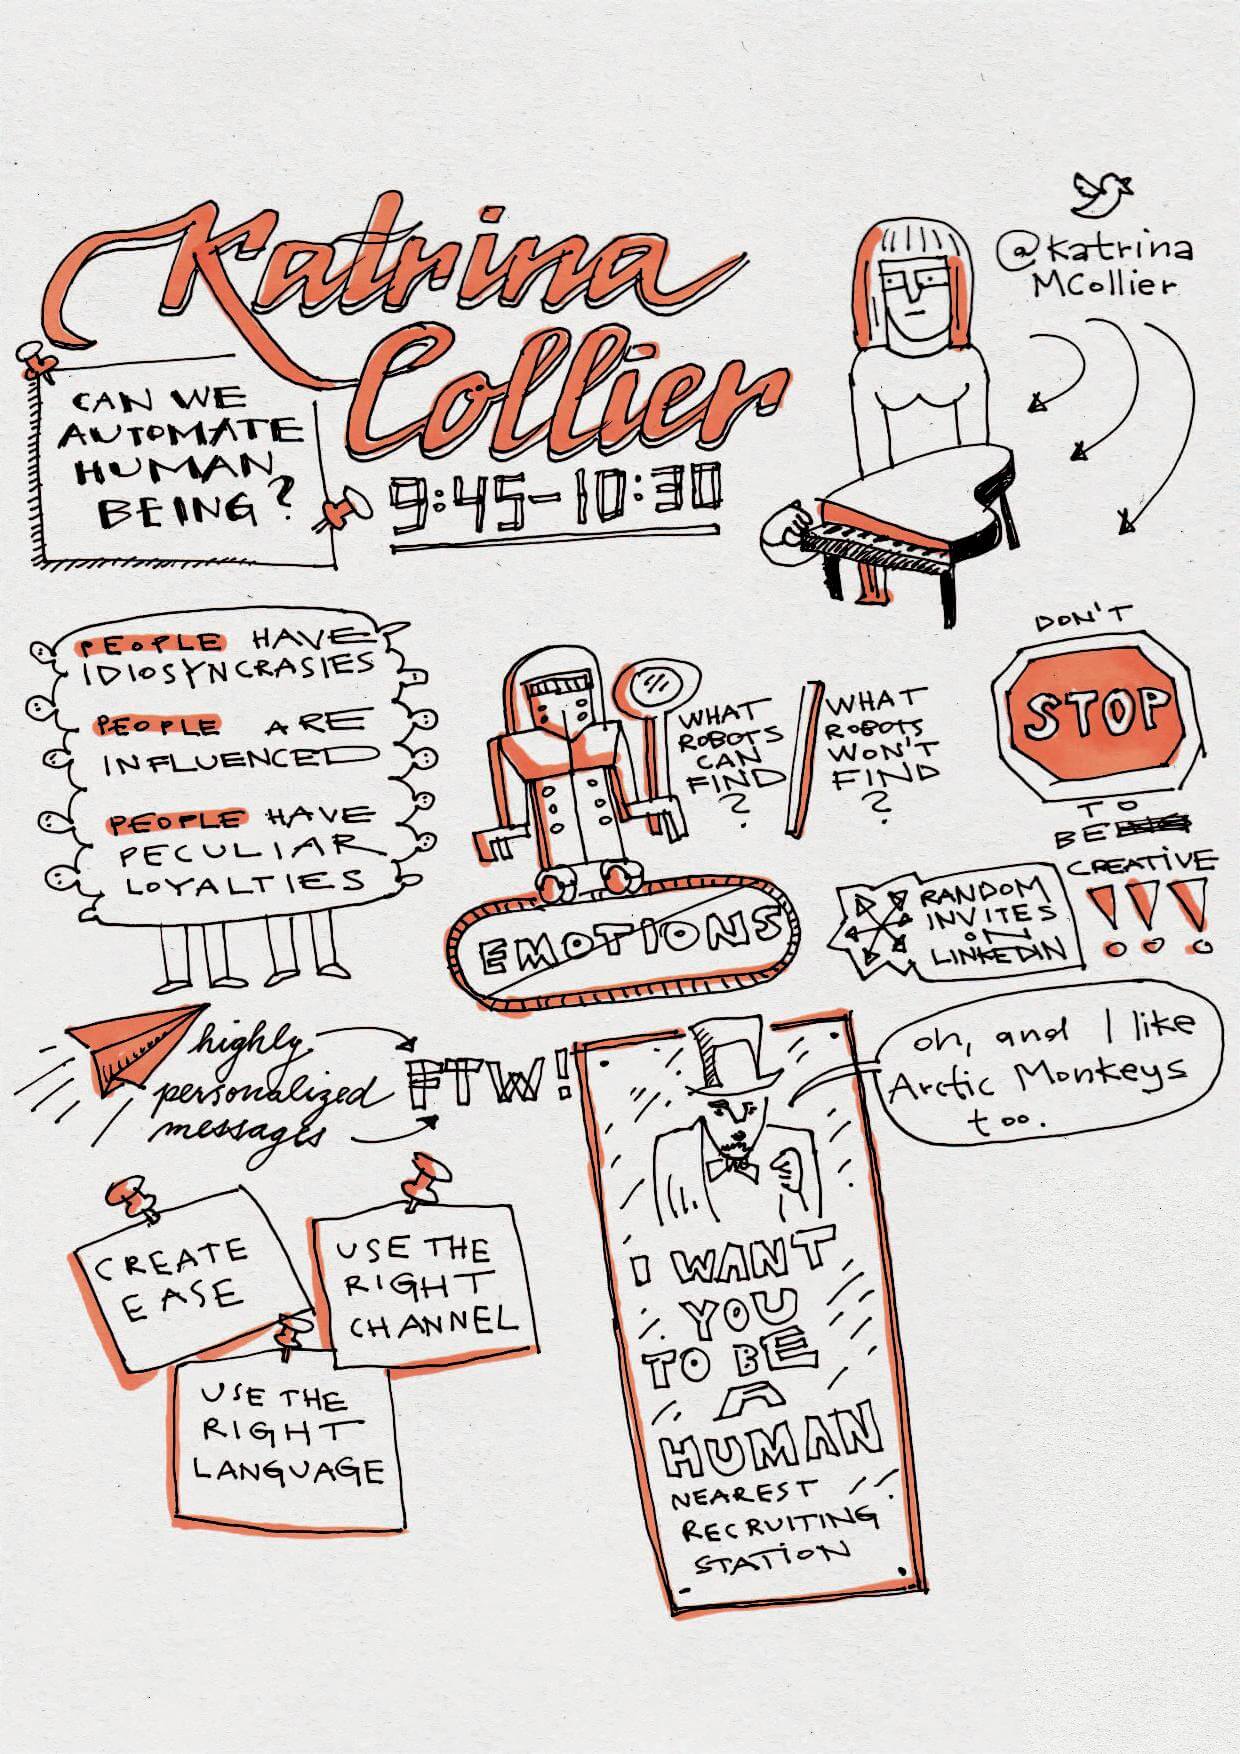 Katrina
Collier
@katrina
MCollier
CAN WE
AUTOMATE
HUMAN
BEING?
9:45-10:30
PEOPLE HAVE
IDIOSYNCRASIES
PEOPLE ARE
INFLUENCED
PEOPLE HAVE
PECULIAR
LOYALTIES
WHAT
ROBOTS
CAN
FIND
?
WHAT
ROBOTS
WON'T
FIND
?
EMOTIONS
DON'T
STOP
TO
BE
CREATIVE
!!!
RANDOM
INVITES
ON
LINKEDIN
highly
personalized
messages
FTW!
oh, and I like
Arctic Monkeys
too.
CREATE
EASE
USE THE
RIGHT
CHANNEL
USE THE
RIGHT
LANGUAGE
I WANT
YOU
TO BE
A
HUMAN
NEAREST
RECRUITING
STATION